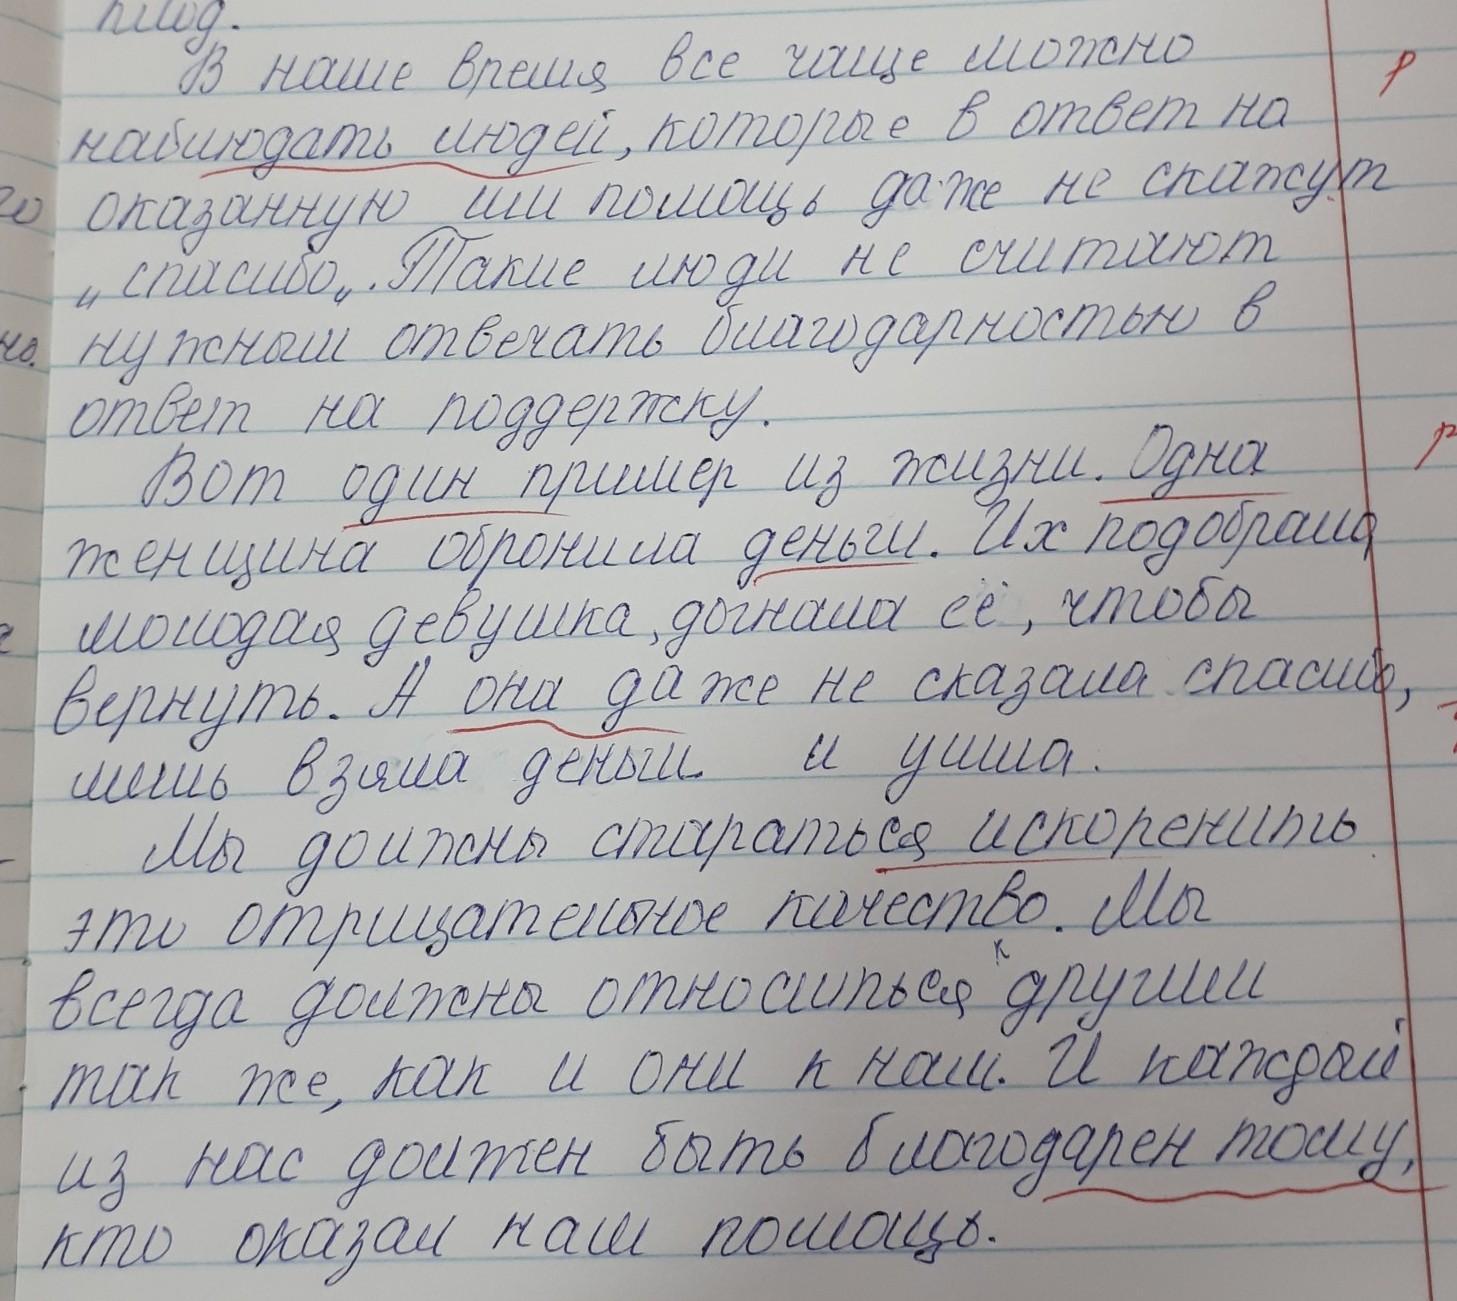 плод.
В наше время все чаще можно
р
наблюдать людей, которые в ответ на
оказанную им помощь даже не скажут
„спасибо„. Такие люди не считают
нужным отвечать благодарностью в
но.
ответ на поддержку.
Вот один пример из жизни. Одна
р
женщина обронила деньги. Их подобрала
молодая девушка, догнала её, чтобы
вернуть. А она даже не сказала спасибо,
лишь взяла деньги и ушла.
Мы должны стараться искоренить
это отрицательное качество. Мы
всегда должны относиться к другим
так же, как и они к нам. И каждый
из нас должен быть благодарен тому,
кто оказал нам помощь.